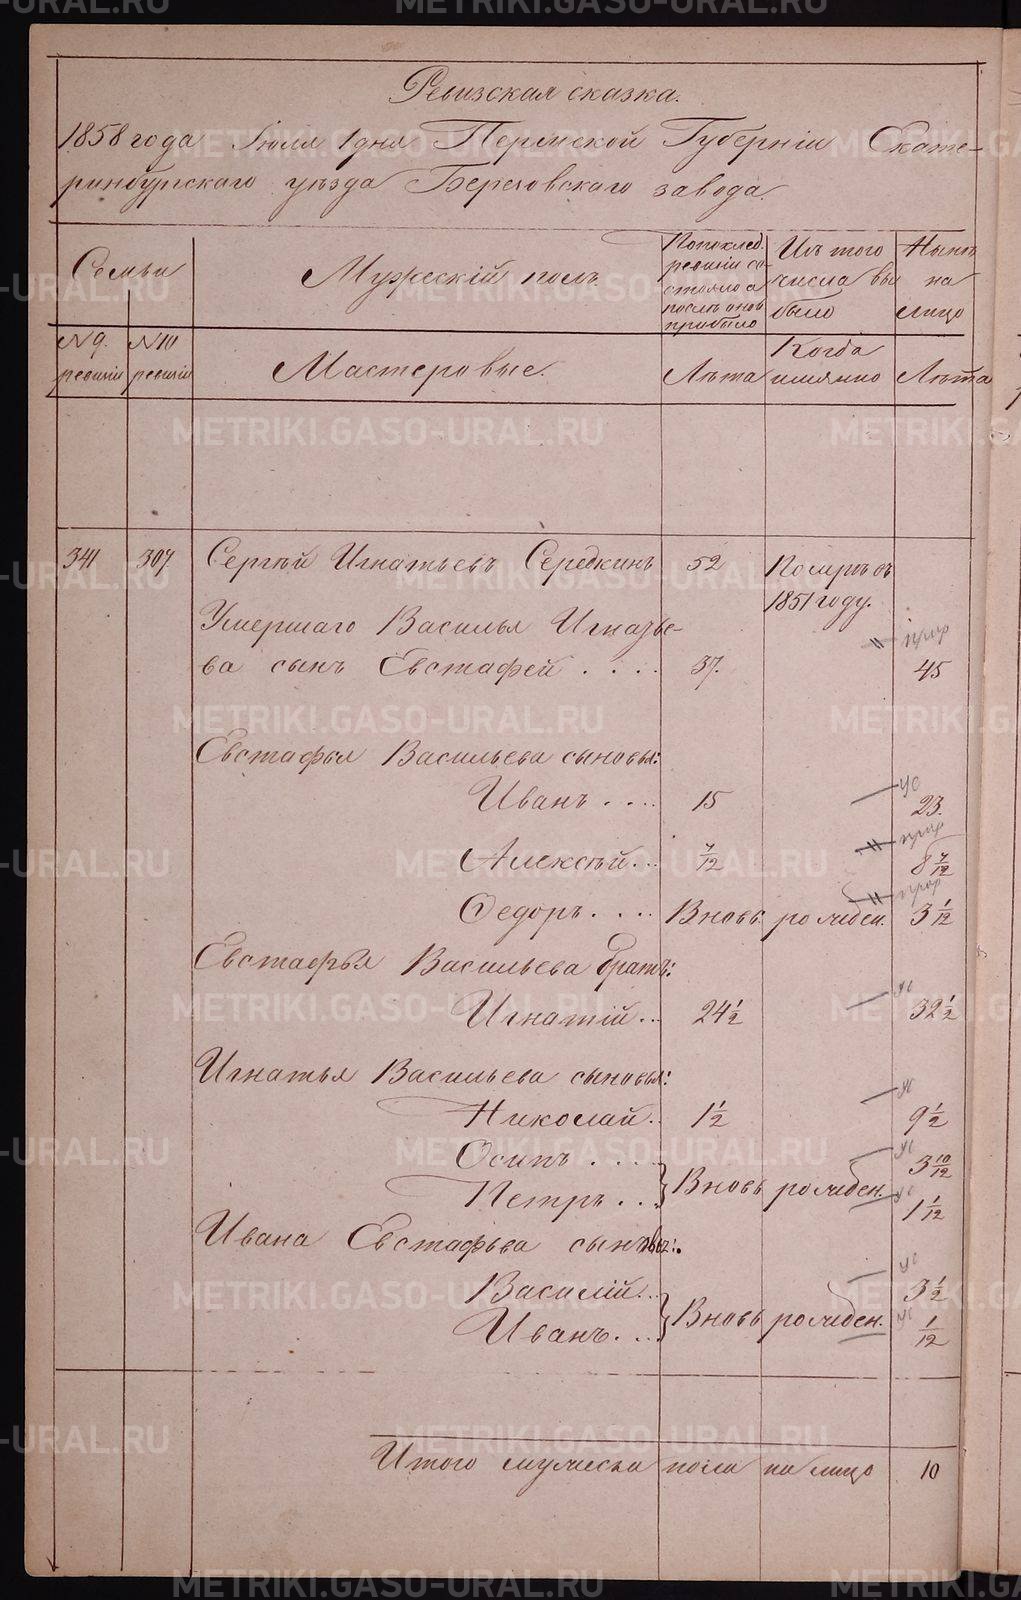 Ревизская сказка.
1858 года Іюля 1 дня Пермской Губерніи Екате-
ринбургскаго уѣзда Березовскаго завода.
Семьи
Мужескій полъ.
По послед. ревизіи со-
стояло а
послѣ оной
прибыло
Изъ того
числа вы
было
Нынѣ
на
лицо
N 9. ревизіи
N 10 ревизіи
Мастеровые.
Лѣта
Когда
имянно
Лѣта
341 307. Сергѣй Игнатьевъ Середкинъ 52 Померъ въ
1851 году.
Умершаго Василья Игнатье-
ва сынъ Евстафей . . . . 37. 45
Евстафья Васильева сыновья:
Иванъ . . . . 15 23.
Алексѣй . . . 7/12 8 7/12
Ѳедоръ . . . . Вновь рожден. 3 1/12
Евстафья Васильева братъ:
Игнатій . . 24 1/2 32 1/2
Игнатья Васильева сыновья:
Николай . . 1 1/2 9 1/2
Осипъ . . . . 3 10/12
Петръ . . . Вновь рожден. 1 1/12
Ивана Евстафьева сыновья:
Василій . . 3 1/2
Иванъ . . . Вновь рожден. 1/12
Итого мужеска пола на лицо 10
METRIKI.GASO-URAL.RU